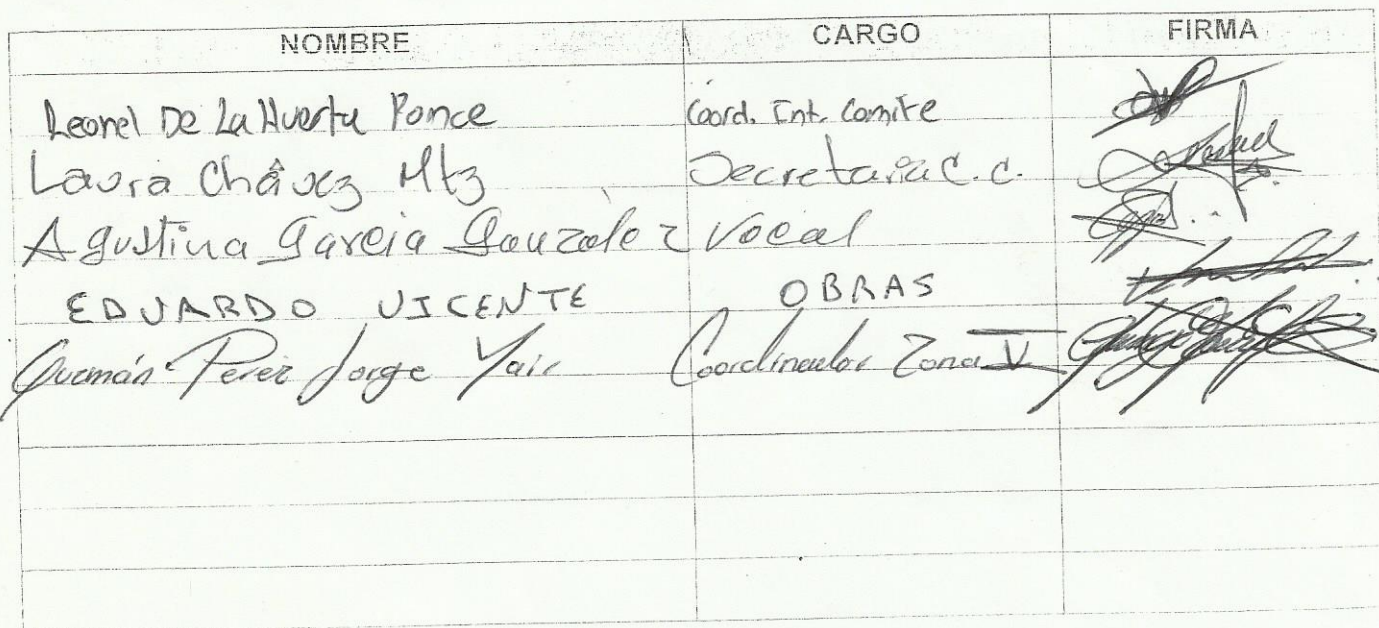 NOMBRE CARGO FIRMA
Leonel De La Huerta Ponce Coord. Int. Comite
Laura Chávez Mtz Secretaria C.C.
Agustina Garcia Gonzalez Vocal
EDUARDO VICENTE OBRAS
Guzmán Perez Jorge Yair Coordinador Zona V